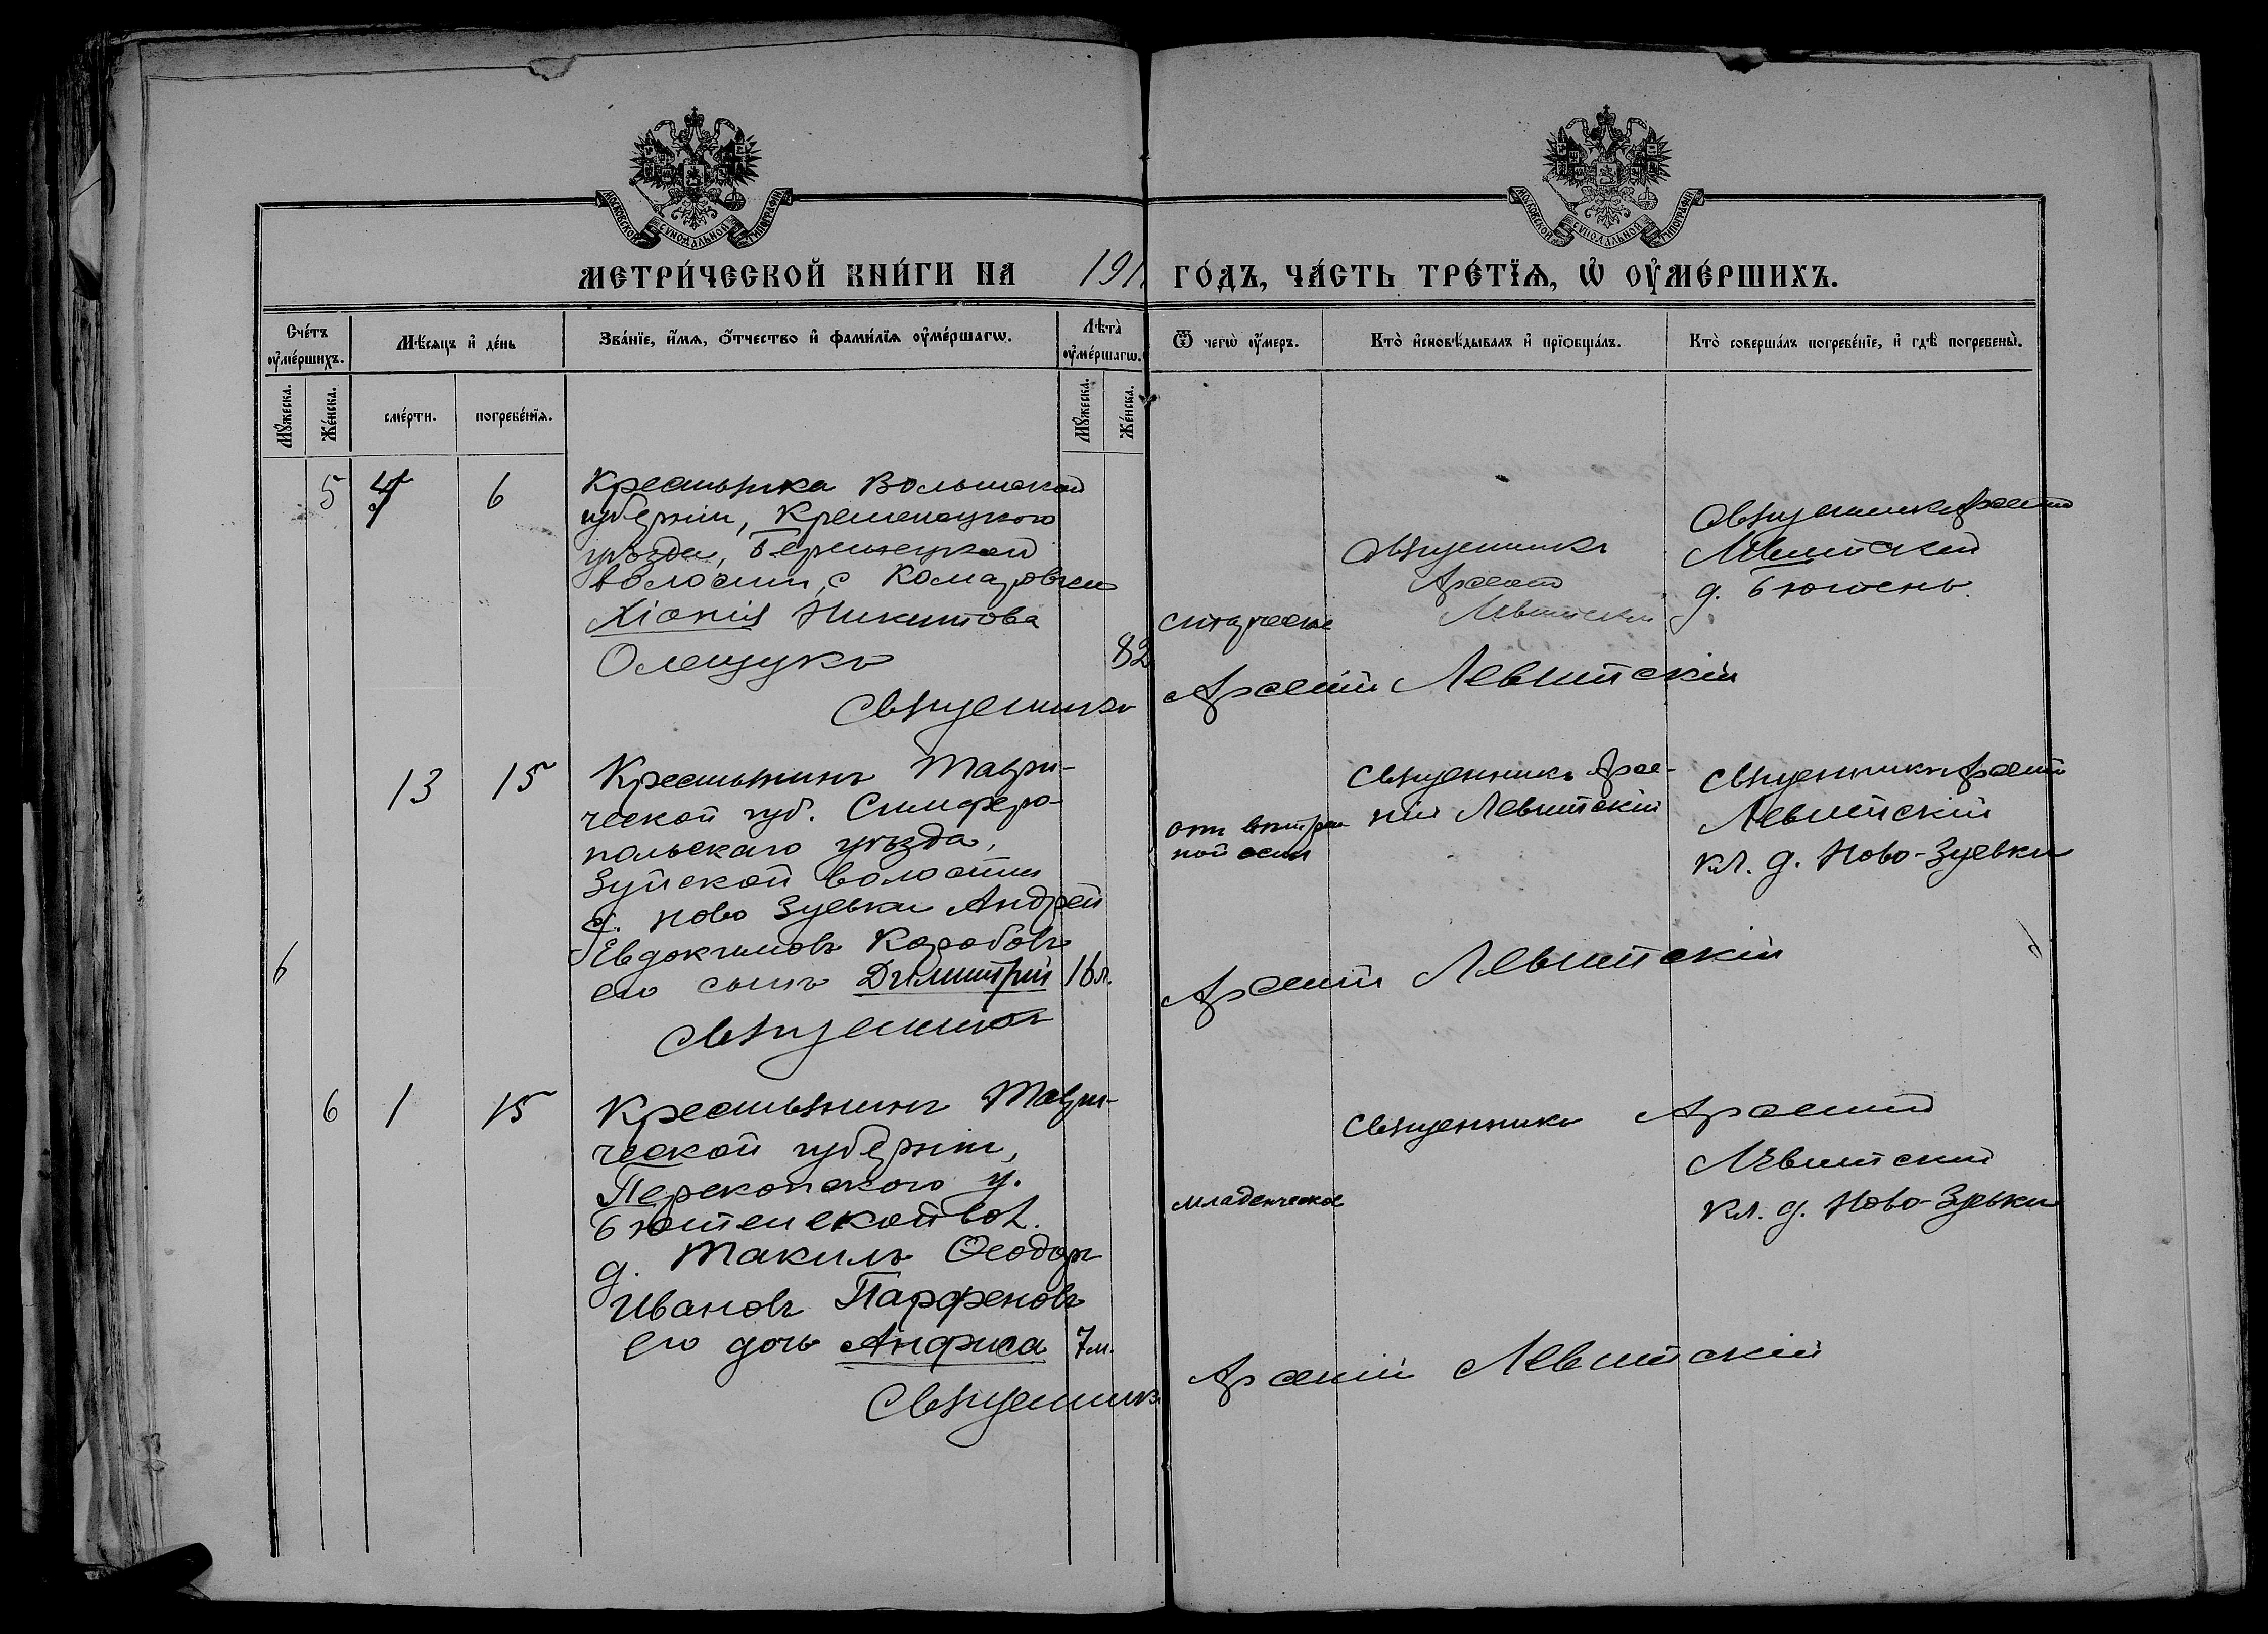 МОСКОВСКОЙ СУНОДАЛЬНОЙ ТИПОГРАФИИ
МОСКОВСКОЙ СУНОДАЛЬНОЙ ТИПОГРАФИИ
МЕТРИ́ЧЕСКОЙ КНИ́ГИ НА 191
ГО́ДЪ, ЧА́СТЬ ТРЕ́ТЇѦ, Ѡ ОУМЕ́РШИХЪ.
Сче́тъ оуме́ршихъ.
Мѣ́сяцъ и де́нь
Зва́нїе, и́мя, о́тчество и фами́лїя оуме́ршагѡ.
Лѣта̀ оуме́ршагѡ.
Ѿ чегѡ̀ оу́меръ.
Кто̀ исповѣ́дывалъ и прїобща́лъ.
Кто̀ соверша́лъ погребе́нїе, и гдѣ̀ погребены̀.
Мꙋ́жеска.
Же́нска.
сме́рти.
погребе́нїя.
Мꙋ́жеска.
Же́нска.
5
6
Крестьянка Волынской
губерніи, Кременецкого
уѣзда, Бережецкой
волости, с Комаровки
Хіонія Никитова
Олещукъ
82
старческіе
Священникъ
Арсеній
Левитскій
Священникъ Арсеній
Левитскій
д. Бютень.
Священникъ Арсеній Левитскій
6
13
15
Крестьянинъ Таври-
ческой губ. Симферо-
польскаго уѣзда,
Зуйской волости
д. Ново Зуевки Андрей
Евдокимовъ Коробовъ
его сынъ Димитрій
16 л.
ной оспы
Священникъ Арсе-
ній Левитскій
Священникъ Арсеній
Левитскій
кл. д. Ново-Зуевки
Священникъ Арсеній Левитскій
6
1
15
Крестьянинъ Таври-
ческой губерніи,
Перекопского у.
Бютенской вол.
д. Такилъ Ѳеодоръ
Ивановъ Парфеновъ
его дочь Анфиса
7 м.
младенческое
Священникъ Арсеній
Левитскій
кл. д. Ново-Зуевки
Священникъ Арсеній Левитскій